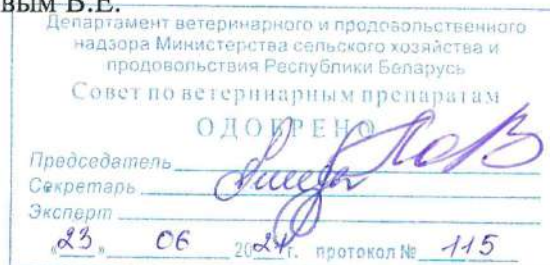 вым В.Е.
Департамент ветеринарного и продовольственного
надзора Министерства сельского хозяйства и
продовольствия Республики Беларусь
Совет по ветеринарным препаратам
ОДОБРЕНО
Председатель
Секретарь
Эксперт
«23» 06 2024г. протокол № 115